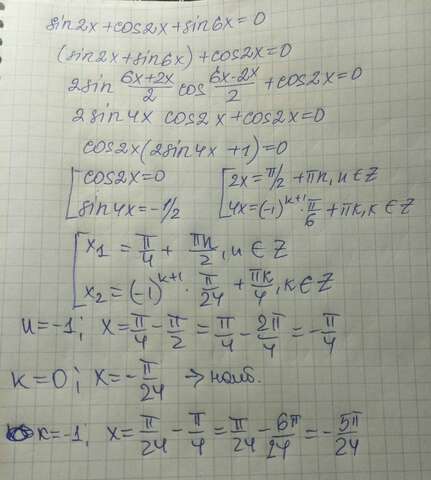 sin2x+cos2x+sin6x=0
(sin2x+sin6x)+cos2x=0
2sin (6x+2x)/2 cos (6x-2x)/2 +cos2x=0
2sin4x cos2x+cos2x=0
cos2x(2sin4x+1)=0
[cos2x=0 [2x=π/2+πn, n∈Z
sin4x=-1/2 4x=(-1)^(k+1)·π/6+πk, k∈Z
[x₁=π/4+πn/2, n∈Z
x₂=(-1)^(k+1)·π/24+πk/4, k∈Z
n=-1; x=π/4-π/2=π/4-2π/4=-π/4
k=0; x=-π/24 → наиб.
k=-1; x=π/24-π/4=π/24-6π/24=-5π/24